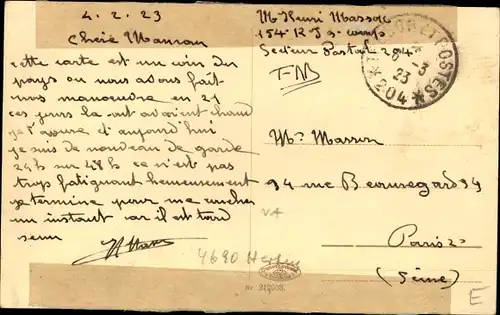 4. 2. 23
Chère Maman
cette carte est un coin du
pays ou nous avons fait
nos manoeuvre en 21
ces jours la ont avaient chaud
je t'assure d'aujourd'hui
je suis de nouveau de garde
24h sur 48h ce n'est pas
trop fatiguant heureusement
je termine pour me coucher
un instant car il est tard
Mr Henri Masson
154 R I
Secteur Postal 204
TNB
POSTES
-3
23
*204*
Mr Masson
94 rue Beauregard 94
Paris 2e
(Seine)
4690
Nr. 212003.
E